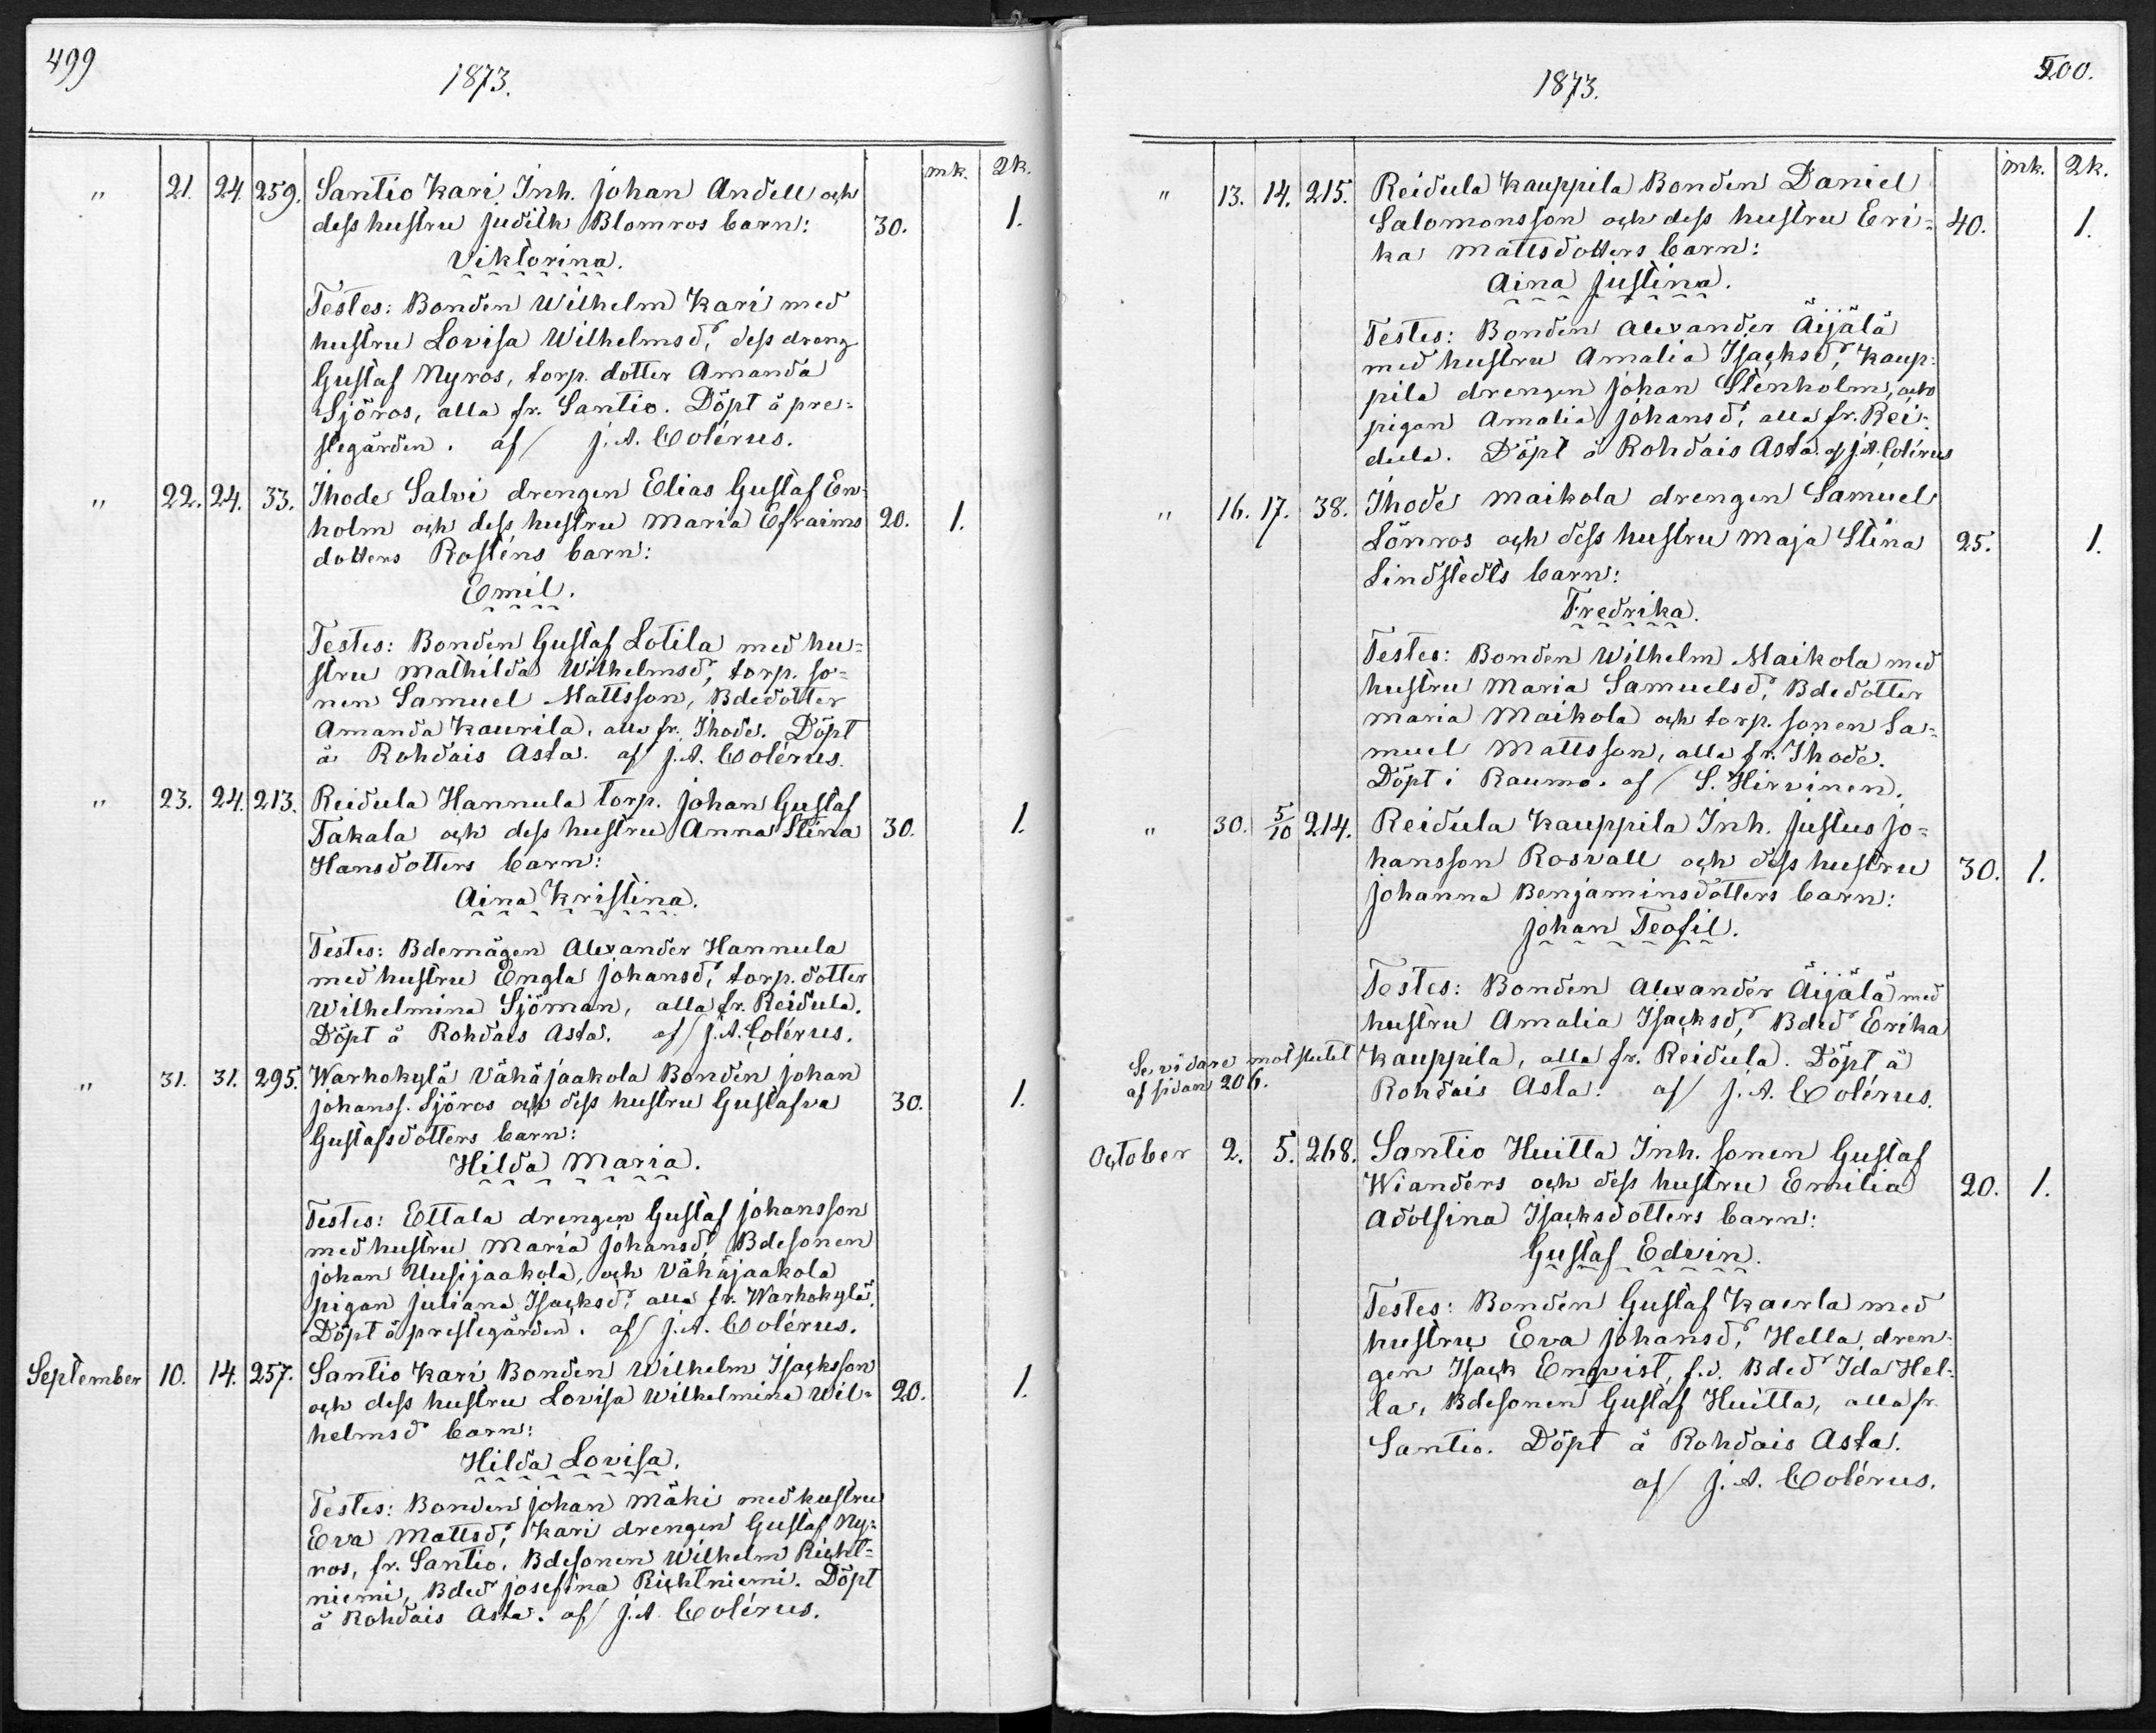 499
1873.
mk. Qk.
" 21. 24. 259. Santio Kari Inh. Johan Andell och
dess hustru Judith Blomros barn: 30. 1.
Viktorina.
Testes: Bonden Wilhelm Kari med
hustru Lovisa Wilhelmsd:r, dess dreng
Gustaf Nyros, torp. dotter Amanda
Sjöros, alla fr. Santio. Döpt å pre-
stegården. af J. A. Colérus.
" 22. 24. 33. Ihode Salvi drengen Elias Gustaf En-
holm och dess hustru Maria Efraims 20. 1.
dotters Rosténs barn:
Emil.
Testes: Bonden Gustaf Lotila med hu-
stru Mathilda Wilhelmsd:r, torp. so-
nen Samuel Mattsson, Bdedotter
Amanda Kaurila, alla fr. Ihode. Döpt
å Rohdais Asta. af J. A. Colérus.
" 23. 24. 213. Reidula Hannula torp. Johan Gustaf
Takala och dess hustru Anna Stina 30. 1.
Hansdotters barn:
Aina Kristina.
Testes: Bdemågen Alexander Hannula
med hustru Engla Johansd:r, torp. dotter
Wilhelmina Sjöman, alla fr. Reidula.
Döpt å Rohdais Asta. af J. A. Colérus.
" 31. 31. 295. Warhokylä Vähäjaakola Bonden Johan
Johanss. Sjöros och dess hustru Gustafva 30. 1.
Gustafsdotters barn:
Hilda Maria.
Testes: Ettala drengen Gustaf Johansson
med hustru Maria Johansd:r, Bdesonen
Johan Uusijaakola, och Vähäjaakola
pigan Juliana Isacksd:r alla fr. Warhokylä.
Döpt å prestegården. af J. A. Colérus.
September 10. 14. 257. Santio Kari Bonden Wilhelm Isacksson
och dess hustru Lovisa Wilhelmina Wil- 20. 1.
helmsd:r barn:
Hilda Lovisa.
Testes: Bonden Johan Mäki med hustru
Eva Mattsd:r, Kari drengen Gustaf Ny-
ros, fr. Santio, Bdesonen Wilhelm Richt-
niemi, Bded:r Josefina Richtniemi. Döpt
å Rohdais Asta. af J. A. Colérus.
500.
1873.
mk. Qk.
" 13. 14. 215. Reidula Kauppila Bonden Daniel
Salomonsson och dess hustru Eri- 40. 1.
ka Mattsdotters barn:
Aina Justina.
Testes: Bonden Alexander Äijälä
med hustru Amalia Isacksd:r, Kaup-
pila drengen Johan Stenholm, och
pigan Amalia Johansd:r, alla fr. Rei-
dula. Döpt å Rohdais Asta. af J. A. Colérus
" 16. 17. 38. Ihode Maikola drengen Samuel
Lönros och dess hustru Maja Stina 25. 1.
Lindstedts barn:
Fredrika.
Testes: Bonden Wilhelm Maikola med
hustru Maria Samuelsd:r, Bdedotter
Maria Maikola och torp. sonen Sa-
muel Mattsson, alla fr. Ihode.
Döpt i Raumo. af S. Hirvinen.
" 30. 5/10 214. Reidula Kauppila Inh. Justus Jo-
hansson Rosvall och dess hustru 30. 1.
Johanna Benjaminsdotters barn:
Johan Teofil.
Testes: Bonden Alexander Äijälä med
hustru Amalia Isacksd:r, Bded:r Erika
Kauppila, alla fr. Reidula. Döpt å
Rohdais Asta. af J. A. Colérus.
Se vidare mot slutet
af sidan 206.
October 2. 5. 268. Santio Huitta Inh. sonen Gustaf
Wianders och dess hustru Emilia 20. 1.
Adolfina Isacksdotters barn:
Gustaf Edvin.
Testes: Bonden Gustaf Kaerla med
hustru Eva Johansd:r, Hella dren-
gen Isack Enqvist, f.d. Bded:r Ida Hel-
la, Bdesonen Gustaf Huitta, alla fr.
Santio. Döpt å Rohdais Asta.
af J. A. Colérus.